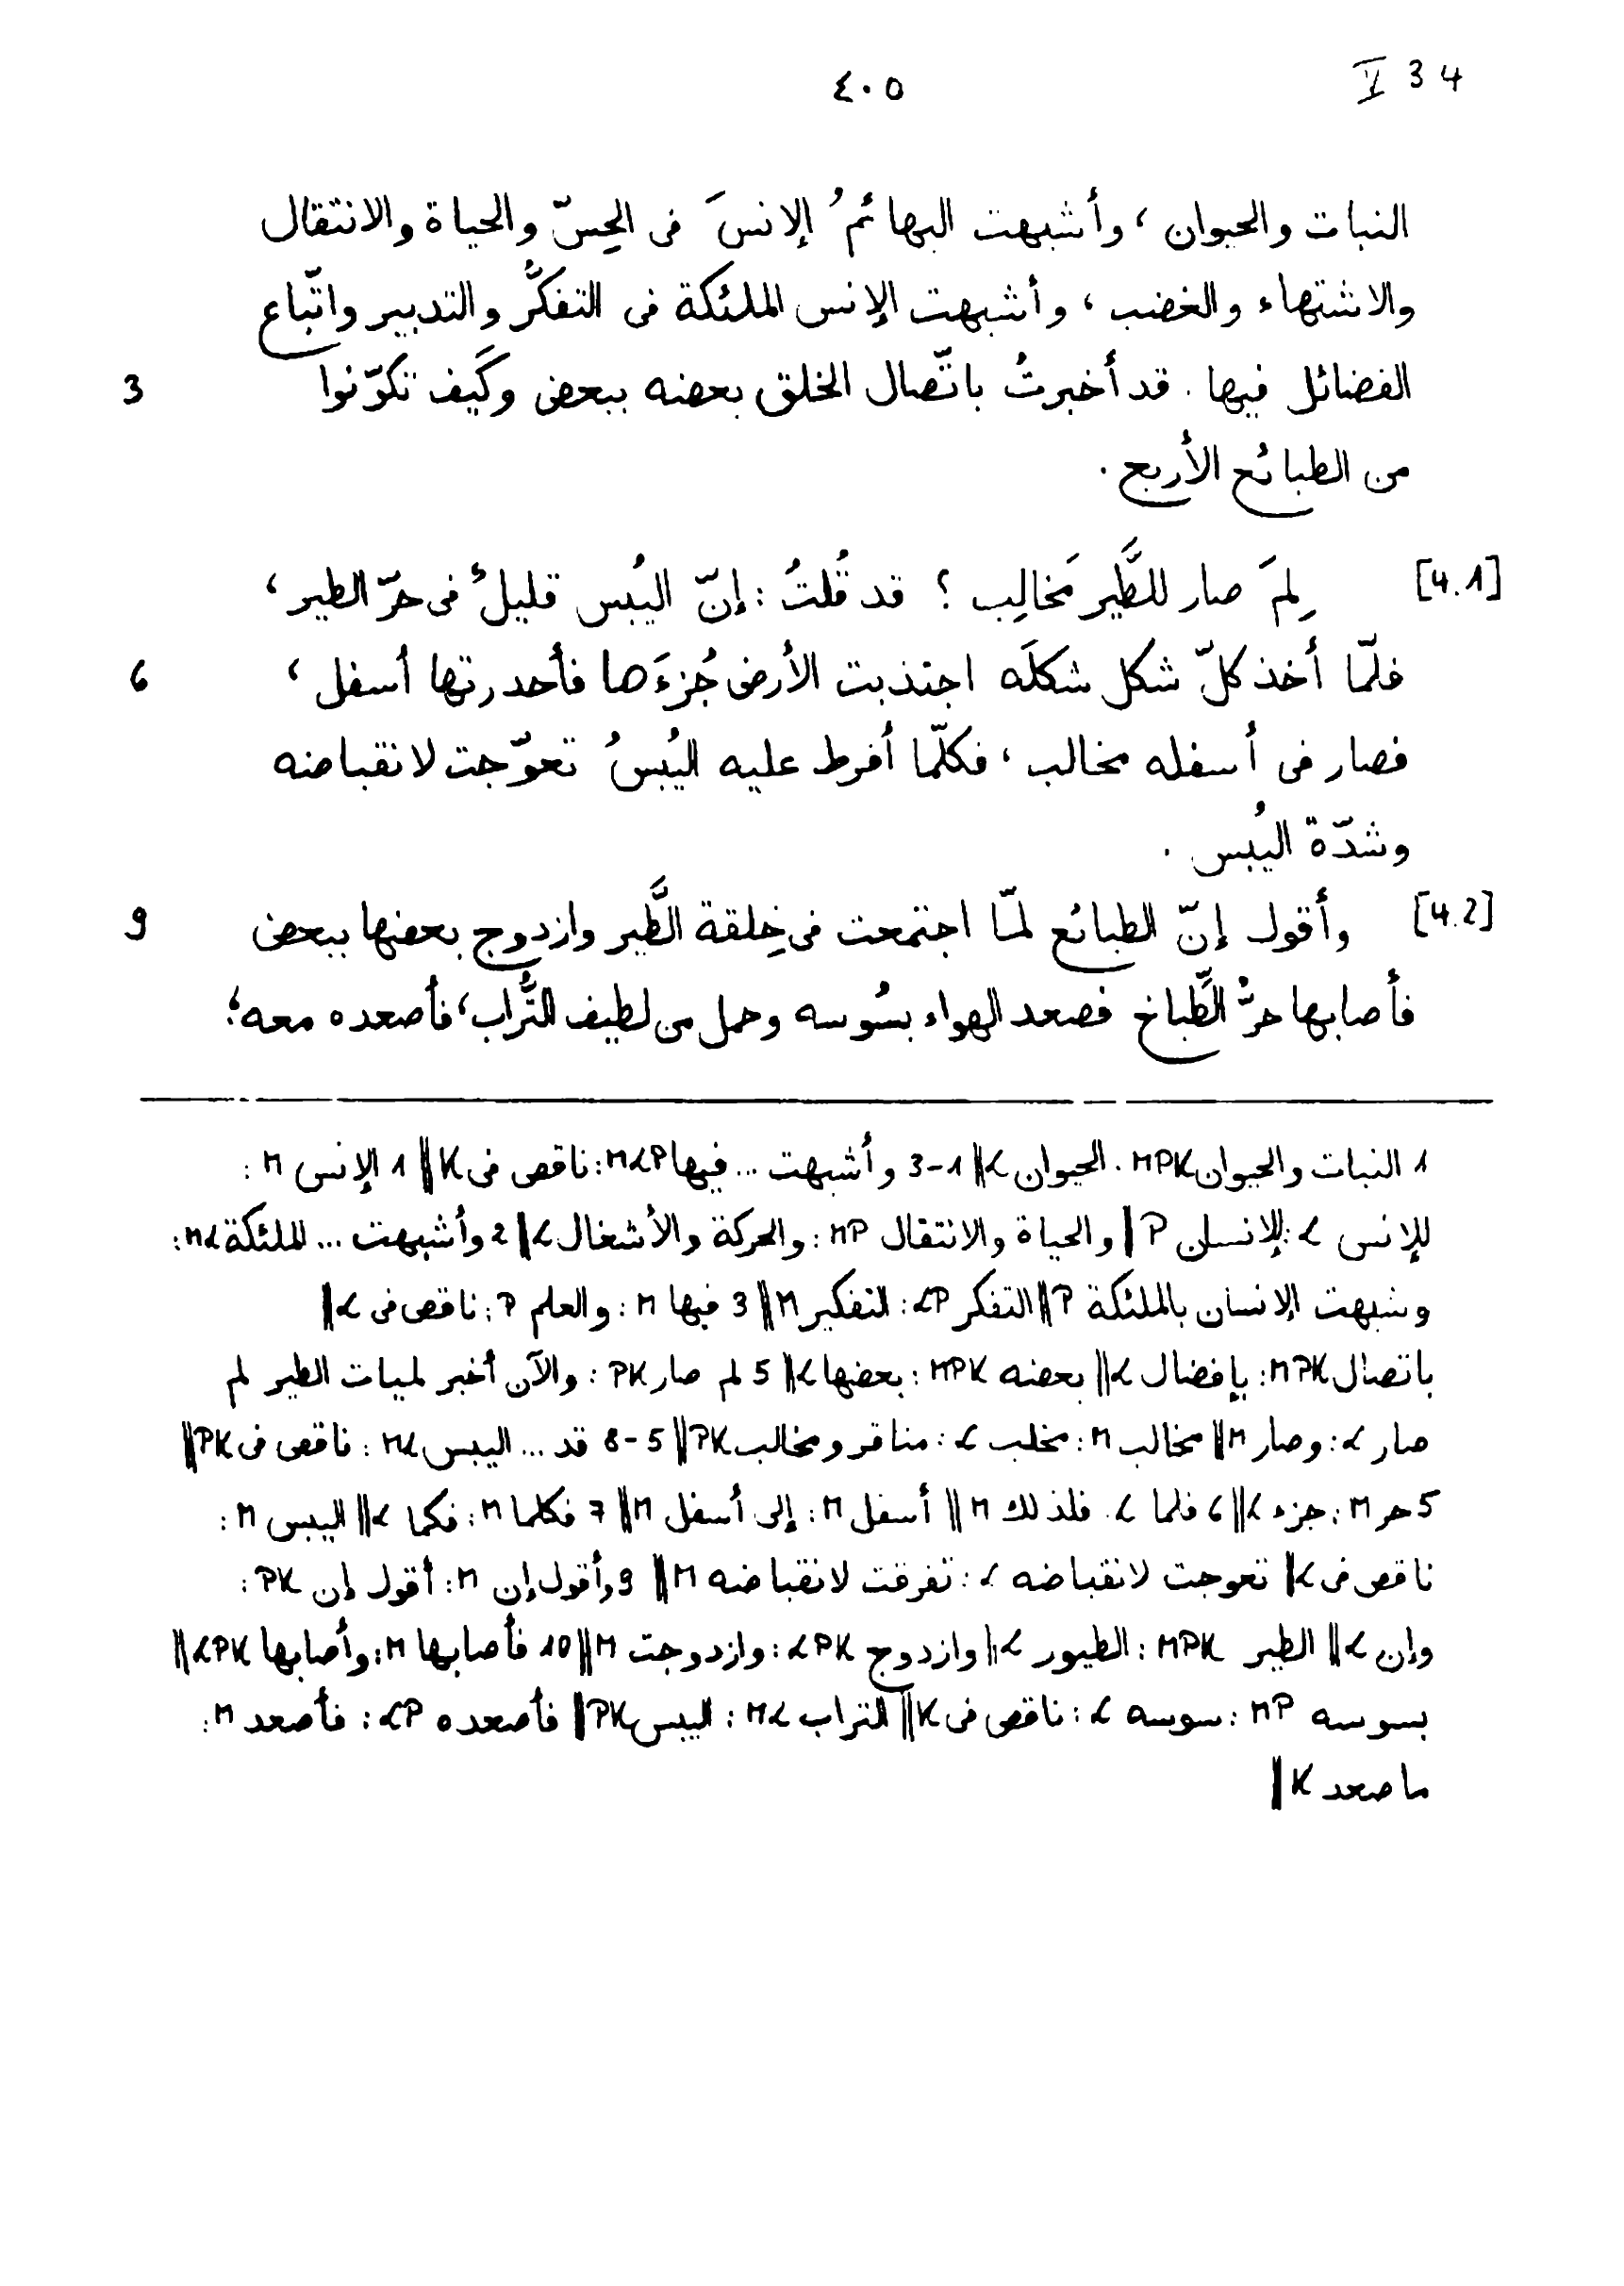 ٤٠٥
V 34
النبات والحيوان ، وأشبهت البهائمُ الإنسَ فى الحِسّ والحياة والانتقال
والاشتهاء والغضب ، وأشبهت الإنس الملئكة فى التفكُّر والتدبير واتّباع
3 الفضائل فيها . قد أخبرتُ باتّصال الخلق بعضه ببعض وكَيف تكوّنوا
من الطبائع الأربع .
[4.1] لِمَ صار للطَّير مَخالِب ؟ قد قُلتُ : إنّ اليُبس قليلٌ فى حرّ الطير ،
6 فلمّا أخذ كلّ شكل شكلَه اجتذبت الأرض جُزءَها فأحدرتها أسفل ،
فصار فى أسفله مخالب ، فكلّما أفرط عليه اليُبسُ تعوّجت لانقباضه
وشدّة اليُبس .
[4.2] 9 وأقول إنّ الطبائع لمّا اجتمعت فى خِلقة الطَّير وازدوج بعضها ببعض
فأصابها حرُّ الطَّباخ فصعد الهواء بسُوسه وحمل من لطيف التُّراب ، فأصعده معه ؛
1 النبات والحيوان MPK . الحيوان L || 1-3 وأشبهت ... فيها MLP : ناقص فى K || 1 الإنس M :
للإنس L : للإنسان P || والحياة والانتقال MP : والحركة والأشغال L || 2 وأشبهت ... الملئكة ML :
وشبهت الإنسان بالملئكة P || التفكر LP : التفكير M || 3 فيها M : والعلم P : ناقص فى L ||
باتصال MPK : بإفضال L || بعضه MPK : بعضها L || 5 لم صار PK : والآن أخبر لميات الطير لم
صار L : وصار M || مخالب M : مخلب L : مناقر ومخالب PK || 5-8 قد ... اليبس ML : ناقص فى PK ||
5 حر M : جزء L || 6 فلما L . فلذلك M || أسفل M : إلى أسفل M || 7 فكلما M : فكما L || اليبس M :
ناقص فى L || تعوجت لانقباضه L : تفرقت لانقباضه M || 9 وأقول إن M : أقول إن PK :
وإن L || الطير MPK : الطيور L || وازدوج LPK : وازدوجت M || 10 فأصابها M : وأصابها LPK ||
بسوسه MP : سوسه L : ناقص فى K || التراب ML : اليبس PK || فأصعده LP : فأصعد M :
ما صعد K ||